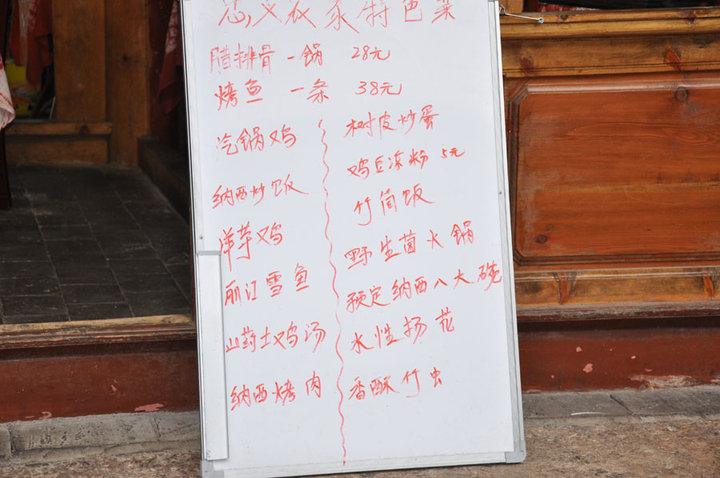 忠义农家特色菜
腊排骨 一锅 28元
烤鱼 一条 38元
汽锅鸡
纳西炒饭
洋芋鸡
丽江雪鱼
山药土鸡汤
纳西烤肉
树皮炒蛋
鸡豆凉粉 5元
竹筒饭
野生菌火锅
预定纳西八大碗
水性扬花
香酥竹虫